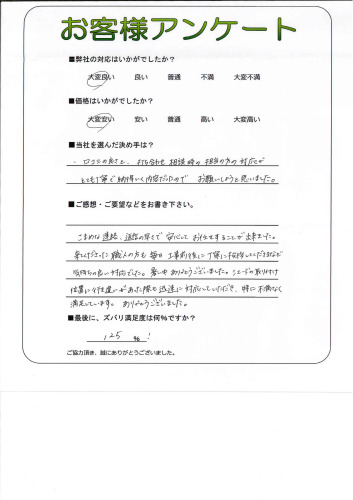 お客様アンケート
■弊社の対応はいかがでしたか？
大変良い 良い 普通 不満 大変不満
■価格はいかがでしたか？
大変安い 安い 普通 高い 大変高い
■当社を選んだ決め手は？
・口コミの良さと、打ち合わせ 相談時の 担当の方の対応が
とても丁寧で納得いく内容だったので お願いしようと思いました。
■ご感想・ご要望などをお書き下さい。
こまめな連絡、返信の早さで 安心して お任せすることが出来ました。
来てくださった 職人の方も 毎日 工事前後に 丁寧に挨拶していただきまして
気持ちの良い対応でした。暑い中 ありがとうございました。シェードの取り付け
位置に行き違いがあった際も 迅速に 対応していただき、特に不満なく
満足しています。ありがとうございました。
■最後に、ズバリ満足度は何％ですか？
125 ％！
ご協力頂き、誠にありがとうございました。